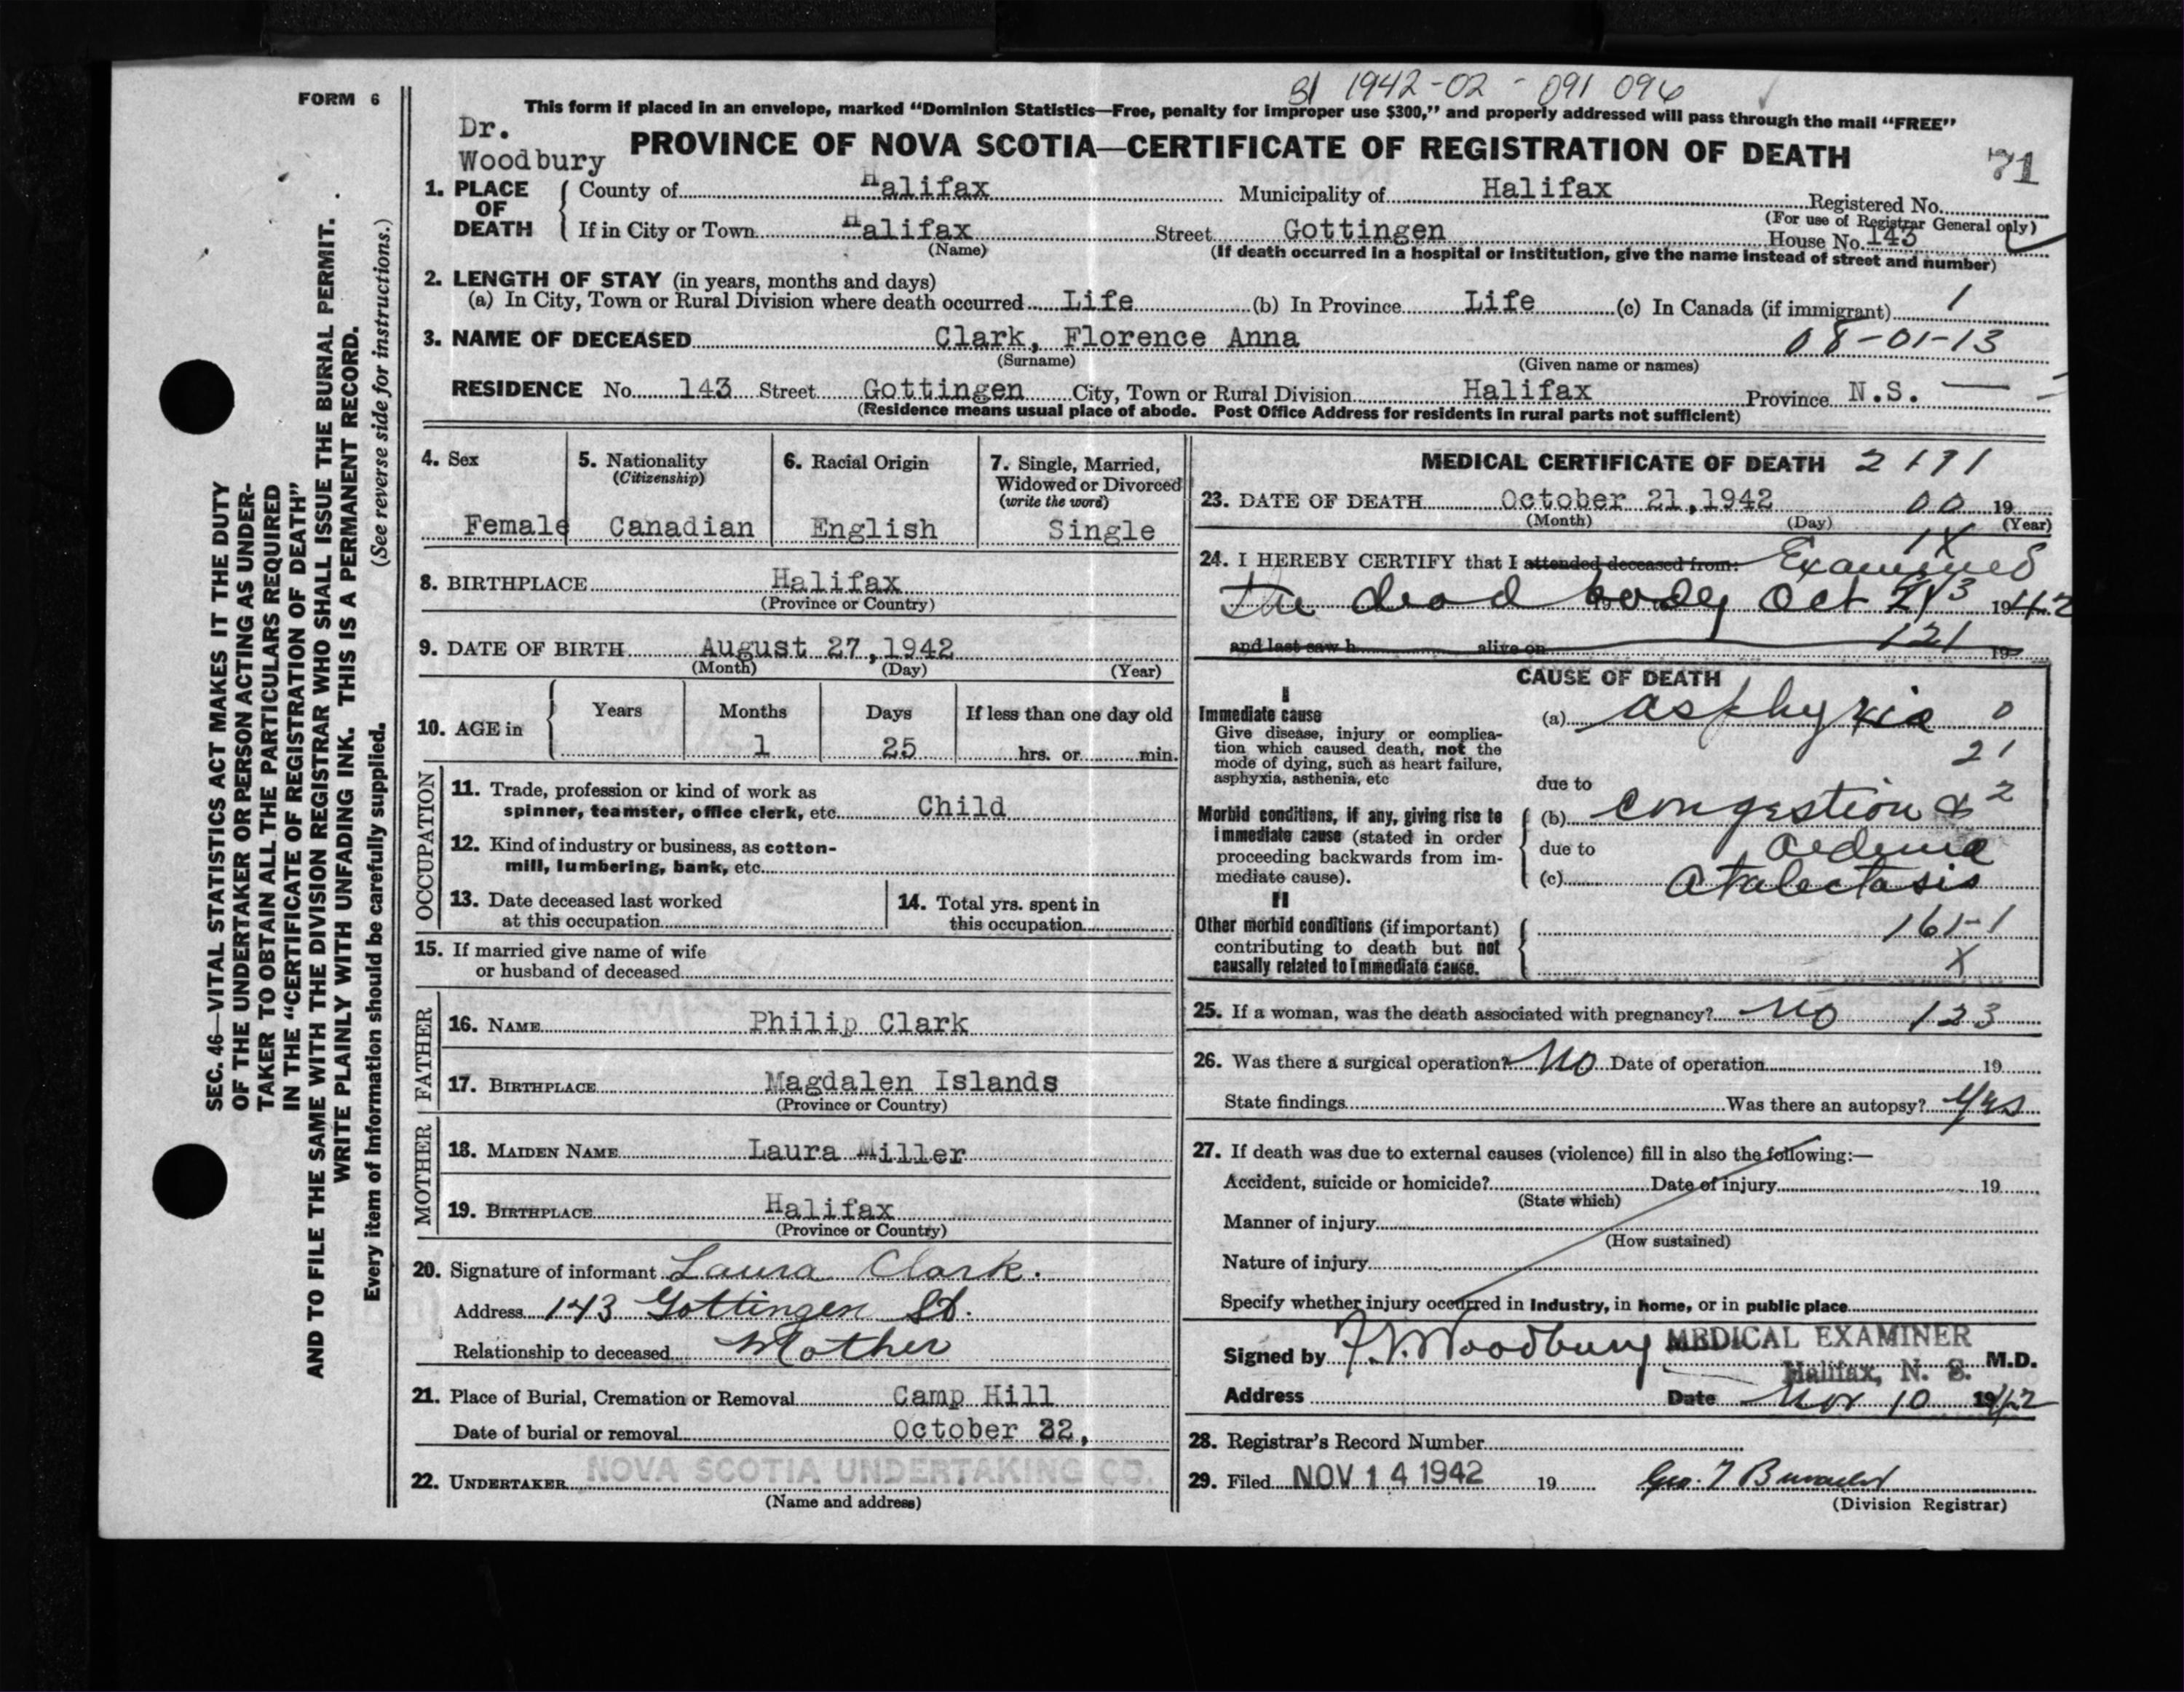 FORM 6
SEC. 46—VITAL STATISTICS ACT MAKES IT THE DUTY
OF THE UNDERTAKER OR PERSON ACTING AS UNDER-
TAKER TO OBTAIN ALL THE PARTICULARS REQUIRED
IN THE "CERTIFICATE OF REGISTRATION OF DEATH"
AND TO FILE THE SAME WITH THE DIVISION REGISTRAR WHO SHALL ISSUE THE BURIAL PERMIT.
WRITE PLAINLY WITH UNFADING INK. THIS IS A PERMANENT RECORD.
Every item of Information should be carefully supplied. (See reverse side for instructions.)
1942-02-091096
This form if placed in an envelope, marked "Dominion Statistics—Free, penalty for improper use $300," and properly addressed will pass through the mail "FREE"
Dr.
Woodbury
PROVINCE OF NOVA SCOTIA—CERTIFICATE OF REGISTRATION OF DEATH
71
1. PLACE OF DEATH
County of Halifax Municipality of Halifax Registered No.
(For use of Registrar General only)
If in City or Town Halifax Street Gottingen House No. 143
(Name) (If death occurred in a hospital or institution, give the name instead of street and number)
2. LENGTH OF STAY (in years, months and days)
(a) In City, Town or Rural Division where death occurred Life (b) In Province Life (c) In Canada (if immigrant) 1
3. NAME OF DECEASED Clark, Florence Anna 08-01-13
(Surname) (Given name or names)
RESIDENCE No. 143 Street Gottingen City, Town or Rural Division Halifax Province N.S.
(Residence means usual place of abode. Post Office Address for residents in rural parts not sufficient)
4. Sex
Female
5. Nationality
(Citizenship)
Canadian
6. Racial Origin
English
7. Single, Married,
Widowed or Divorced
(write the word)
Single
8. BIRTHPLACE Halifax
(Province or Country)
9. DATE OF BIRTH August 27, 1942
(Month) (Day) (Year)
10. AGE in
Years Months Days If less than one day old
1 25 hrs. or min.
OCCUPATION
11. Trade, profession or kind of work as
spinner, teamster, office clerk, etc. Child
12. Kind of industry or business, as cotton-
mill, lumbering, bank, etc.
13. Date deceased last worked
at this occupation
14. Total yrs. spent in
this occupation
15. If married give name of wife
or husband of deceased
FATHER
16. NAME Philip Clark
17. BIRTHPLACE Magdalen Islands
(Province or Country)
MOTHER
18. MAIDEN NAME Laura Miller
19. BIRTHPLACE Halifax
(Province or Country)
20. Signature of informant Laura Clark.
Address 143 Gottingen St.
Relationship to deceased Mother
21. Place of Burial, Cremation or Removal Camp Hill
Date of burial or removal October 22,
22. UNDERTAKER NOVA SCOTIA UNDERTAKING CO.
(Name and address)
MEDICAL CERTIFICATE OF DEATH 2191
23. DATE OF DEATH October 21, 1942 00 19
(Month) (Day) (Year)
1X
24. I HEREBY CERTIFY that I attended deceased from: Examined
the dead body Oct 21 3 1942
and last saw h alive on 121 19
CAUSE OF DEATH
I
Immediate cause
Give disease, injury or complica-
tion which caused death, not the
mode of dying, such as heart failure,
asphyxia, asthenia, etc
(a) Asphyxia 0
21
due to
Morbid conditions, if any, giving rise to
immediate cause (stated in order
proceeding backwards from im-
mediate cause).
(b) Congestion & 2
due to Oedema
(c) Atalectasis
II
Other morbid conditions (if important)
contributing to death but not
causally related to immediate cause.
161-1
X
25. If a woman, was the death associated with pregnancy? No 123
26. Was there a surgical operation? No Date of operation 19
State findings Was there an autopsy? Yes
27. If death was due to external causes (violence) fill in also the following:—
Accident, suicide or homicide? Date of injury 19
(State which)
Manner of injury
(How sustained)
Nature of injury
Specify whether injury occurred in Industry, in home, or in public place
Signed by F.V. Woodbury MEDICAL EXAMINER M.D.
Halifax, N. S.
Address Date Nov 10 1942
28. Registrar's Record Number
29. Filed NOV 14 1942 19 Geo. T
(Division Registrar)